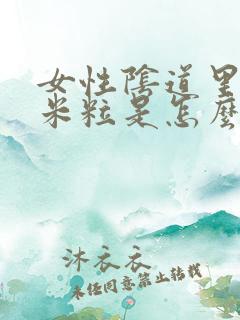 女性陰道里
米粒是怎麼
沐衣衣
未经同意禁止转载